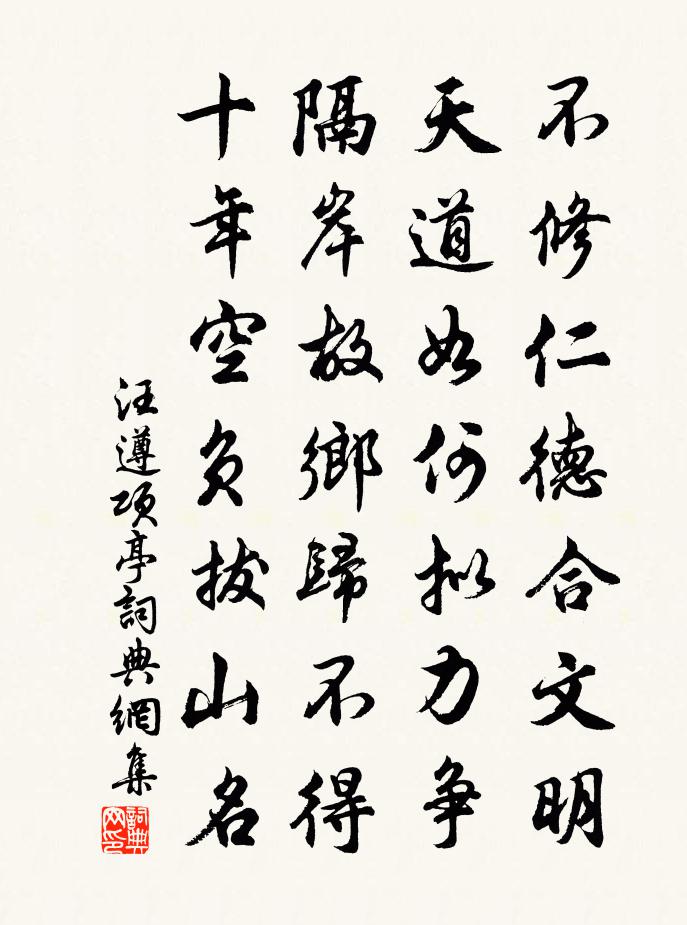 不修仁德合文明
天道如何拟力争
隔岸故鄉歸不得
十年空负拔山名
汪遵项亭詞典網集
詞典网印